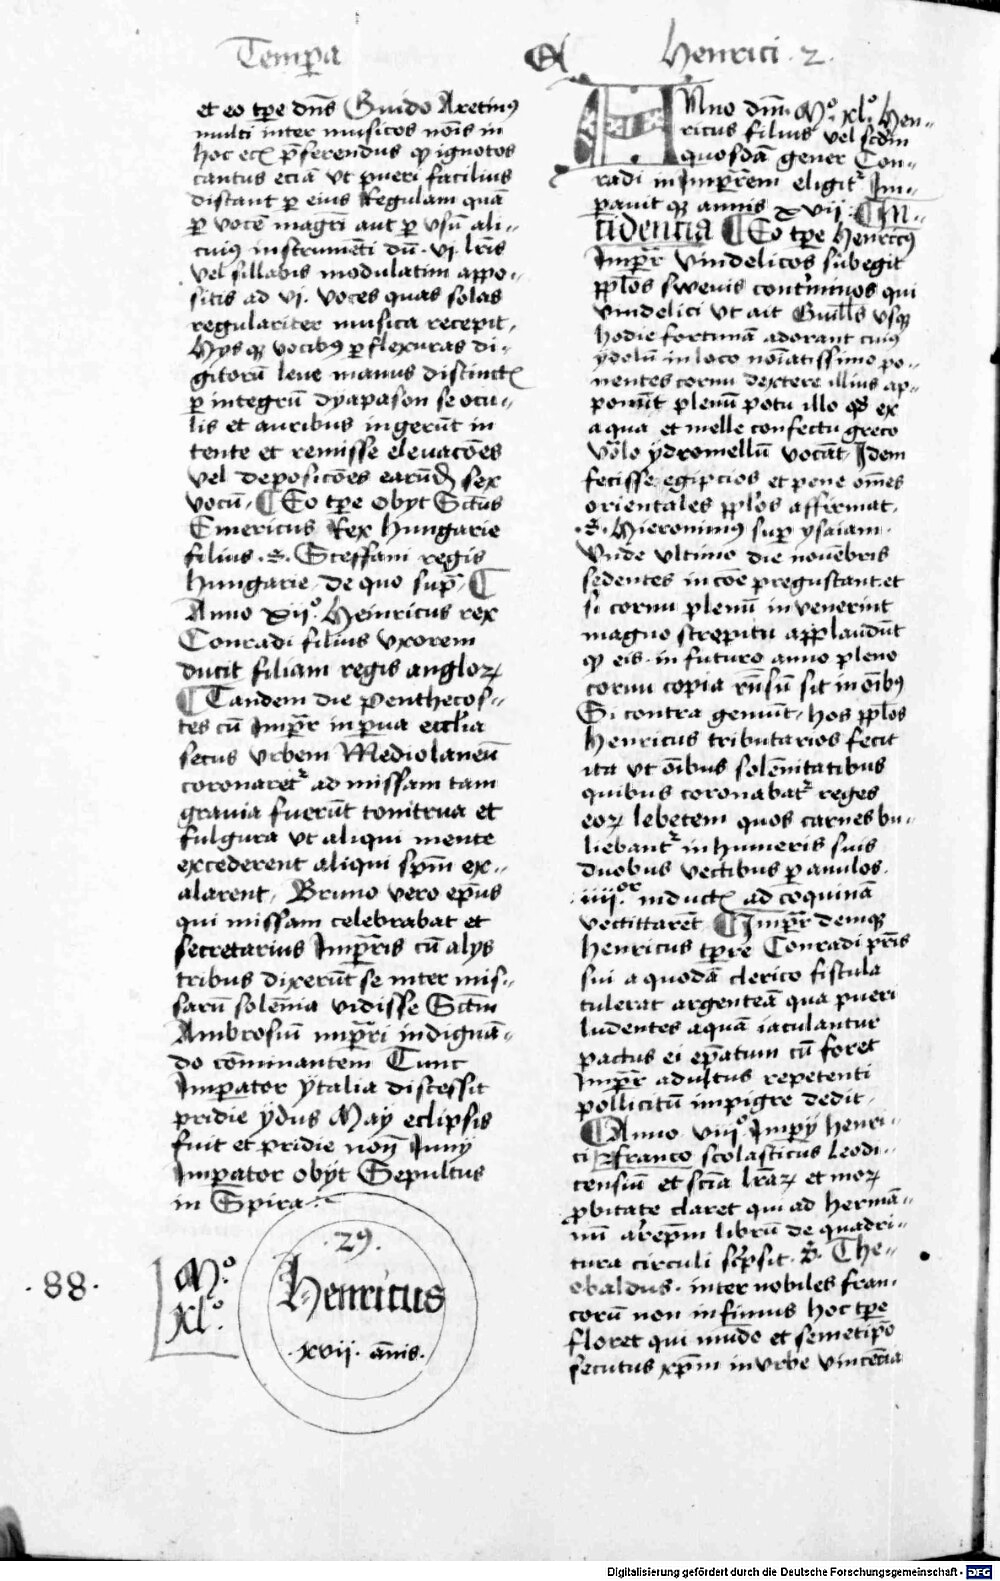 Temp̄a
et eo tp̄e dn̄s Guido Aretinꝰ
multi inter musicos nōis in
hoc ecꝭ p̄ferendus qꝫ ignotos
cantus eciā vt pueri facilius
distant ꝑ eius Regulam quā
ꝑ vocē magrī aut ꝑ vsū ali-
cuiꝰ instrumēti dū · vj · lrīs
vel sillabis modulatim appo-
sitis ad vj · voces quas solas
regulariter musica recepit,
Hys qꝫ vocibꝰ ꝑ flexuras di-
gitorū leue manus distinctꝭ
ꝑ integrū dyapason se ocu-
lis et auribus ingerūt in
tente et remisse eleuacōes
vel deposicōes earūdꝫ sex
vocū, ¶ Eo tp̄e obyt Sctūs
Emericus Rex Hungarie
filius · S · Steffani regis
hungarie, de quo sup̄, ¶
Anno xijº. Heinricus rex
Conradi filius vxorem
ducit filiam regis angloꝝ
¶ Tandem die penthecos-
tes cū Imp̄r in ꝑua ecclīa
secus vrbem Mediolanenū
coronaretᷣ ad missam tam
grauia fuerūt tonitrua et
fulgura vt aliqui mente
excederent aliqui spm̄ ex-
alarent, Bruno vero ep̄us
qui missam celebrabat et
secretarius Imp̄ris cū alys
tribus dixerūt se inter mis-
sarū solēnia vidisse Sctm̄
Ambrosiū imp̄ri indignā-
do cōminantem Tunc
Imp̄ator ytalia discessit
pridie ydus May eclipsis
fuit et pridie non̄ Iuny
Imp̄ator obyt Sepultus
in Spira
· 88 ·
Mº.
xlº.
· 29 ·
Henricus
· xvij · ānis ·
Et Henrici · 2 ·
ANno dnī · Mº · xlº · Hen-
ricus filius vel scdm̄
quosdā gener Con-
radi in Imp̄rem eligitᷣ Im-
ꝑauit qꝫ annis xvij · ¶ In-
cidencia ¶ Eo tp̄e Henricꝰ
Imp̄r vindelicos subegit
pp̄los sweuis contᷣminos qui
vindelici vt ait Guill̄s vsqꝫ
hodie fortunā adorant cuiꝰ
ydolū in loco noīatissimo po-
nentes cornu dextere illius ap-
ponūt plenū potu illo qd̄ ex
aqua et melle confectu greco
vōlo ydromellū vocāt, Idem
fecisse egipcios et pene om̄es
orientales pp̄los affirmat
· S · Hieronimꝰ sup̄ ysaiam ·
Vnde vltimo die nouēbris
sedentes in cōe pregustant et
si cornu plenū inuenerint
magno strepitu applaudūt
qꝫ eis · in futuro anno pleno
cornu copia rn̄sū sit in oībꝰ
Si contra gemūt, hos pp̄los
Henricus tributarios fecit
ita vt oībus solēnitatibus
quibus coronabatᷣ reges
eoꝝ lebetem quos carnes bu-
liebantᷣ in humeris suis
duobus vectibus ꝑ anulos ·
iiijᵒʳ inductꝭ ad coquinā
vectittarēt ¶ Imp̄r demqꝫ
Henricus tp̄re Conradi pr̄is
sui a quodā clerico fistula
tulerat argenteā qua pueri
ludentes aquā iaculantur
pactus ei ep̄atum cū foret
Imp̄r adultus repetenti
pollicitū impigre dedit,
¶ Anno viijº Impȳ Henri-
ci franco scolasticus Leodi-
censiū et scīa lrāꝝ et moꝝ
ꝓbitate claret qui ad hermā-
nū ar̄ep̄m librū de quadri-
tura circuli scp̄sit · S · The-
ebaldus · inter nobiles fran-
corū non infimus hoc tp̄e
floret qui mūdo et semetip̄o
secutus xp̄m in vrbe vincēcia
Digitalisierung gefördert durch die Deutsche Forschungsgemeinschaft - DFG